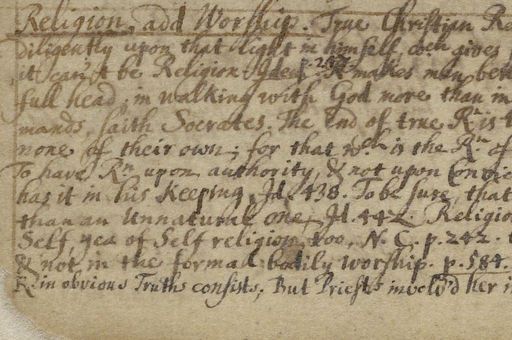 Religion, add Worship. True Christian Re
diligently upon that light in himself wch gives
it can't be Religion Idem p. 247. Rn makes man bett
full head, in walking with God more than in
mands, saith Socrates, The end of true Rn is t
none of their own; for that wch is the Rn of
To have Rn upon authority, & not upon Convic
has it in his Keeping, Id. 438. To be sure, that
than an Unnatural one, Id. 442. Religio
Self, yea of Self religion too, N. C. p. 242.
& not in the formal bodily worship. p. 584.
Rn in obvious Truths consists; But Priests involv'd her i